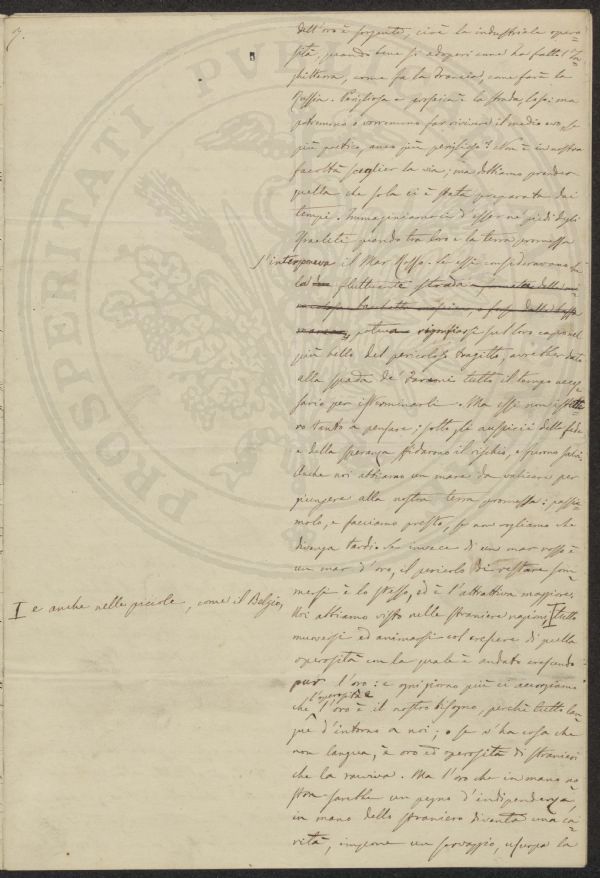 7.
dell'oro è sorgente, cioè la industriale opero-
sità, quando bene si adoperi come ha fatto l'In-
ghilterra, come fa la Francia, come farà la
Russia. Perigliosa e prosaica è la strada, lo so: ma
potremmo o vorremmo far rivivere il medio evo, se
più poetico, anco più periglioso? Non è in nostra
facoltà scoglier la via; ma dobbiamo prender
quella che sola ci è stata preparata dai
tempi. Immaginiamoci d'esser ne' piedi degli
Israeliti quando tra loro e la terra promessa
s'interponeva il Mar Rosso. Se essi consideravano
la fluttuante strada
poteva sul loro capo nel
più bello del pericoloso tragitto, avrebber dato
alla spada de' Faraoni tutto il tempo neces-
sario per isterminarli. Ma essi non istette-
ro tanto a pensare: sotto gli auspicii della fede
e della speranza sfidarono il rischio, e furono salvi.
Anche noi abbiamo un mare da valicare per
giungere alla nostra terra promessa: passia-
molo, e facciamo presto, se non vogliamo che
divenga tardi. Se invece di un mar rosso è
un mar d'oro, il pericolo di restare som-
mersi è lo stesso, ed è l'attrattiva maggiore.
Noi abbiamo visto nelle straniere nazioni, tutto
I e anche nelle piccole, come il Belgio,
muoversi ed animarsi col crescere di quella
operosità con la quale è andato crescendo
pur l'oro: e ogni giorno più ci accorgiamo
l'operosità e
che l'oro è il nostro bisogno, perchè tutto lan-
gue d'intorno a noi; o se v'ha cosa che
non langua, è oro ed operosità di stranieri
che la ravviva. Ma l'oro che in mano no-
stra sarebbe un pegno d'indipendenza,
in mano dello straniero diventa una ca-
rità, impone un servaggio, usurpa la
PROSPERITATI PUBLICAE